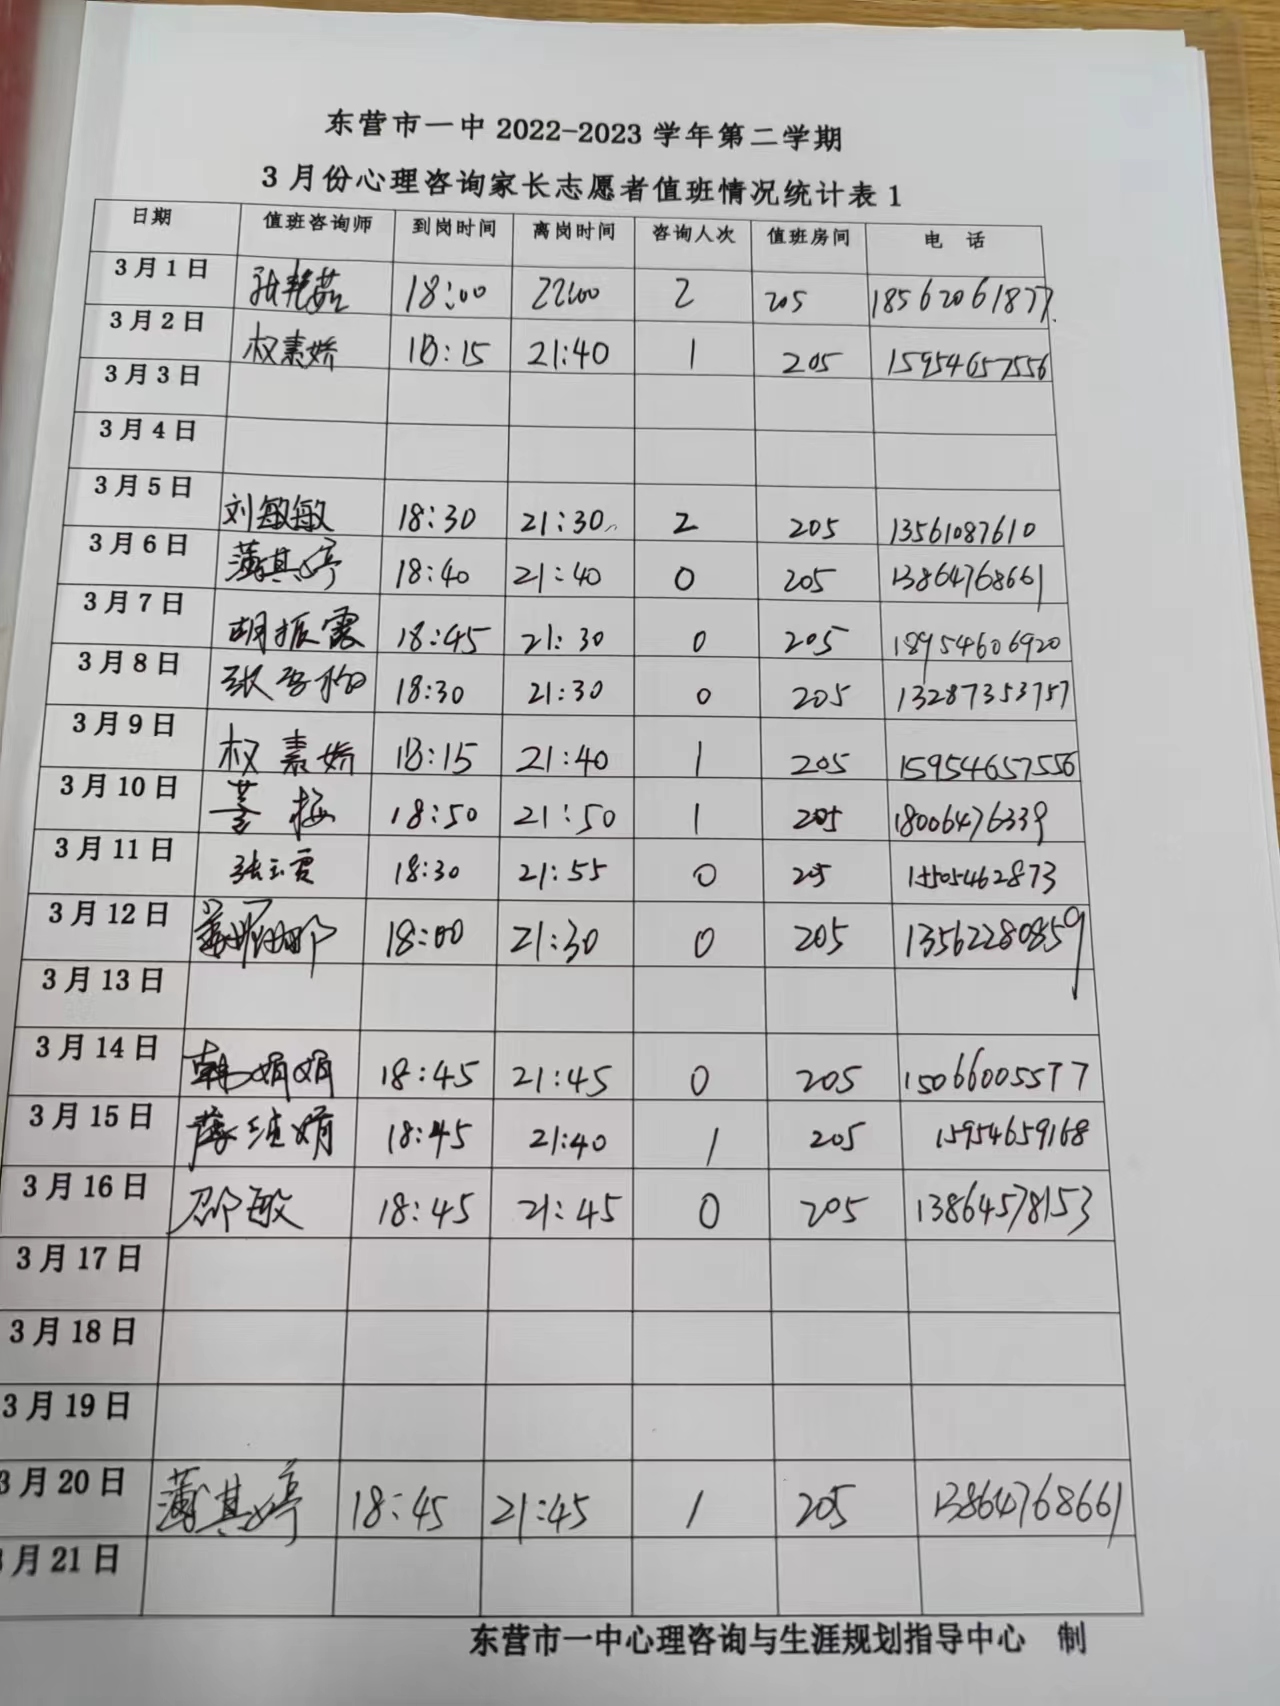 东营市一中 2022-2023 学年第二学期
3 月份心理咨询家长志愿者值班情况统计表 1
日期 值班咨询师 到岗时间 离岗时间 咨询人次 值班房间 电 话
3 月 1 日 张艳茹 18:00 22:00 2 205 18562061877
3 月 2 日 权素娇 18:15 21:40 1 205 15954657556
3 月 3 日
3 月 4 日
3 月 5 日 刘敏敏 18:30 21:30 2 205 13561087610
3 月 6 日 薄其婷 18:40 21:40 0 205 13864768661
3 月 7 日 胡振霞 18:45 21:30 0 205 18954606920
3 月 8 日 18:30 21:30 0 205 13287353757
3 月 9 日 权素娇 18:15 21:40 1 205 15954657556
3 月 10 日 梅 18:50 21:50 1 205 18006476339
3 月 11 日 张玉霞 18:30 21:55 0 205 15505462873
3 月 12 日 18:00 21:30 0 205 13562280859
3 月 13 日
3 月 14 日 韩娟娟 18:45 21:45 0 205 15066005577
3 月 15 日 娟 18:45 21:40 1 205 15954659168
3 月 16 日 邵敏 18:45 21:45 0 205 13864578153
3 月 17 日
3 月 18 日
3 月 19 日
3 月 20 日 薄其婷 18:45 21:45 1 205 13864768661
月 21 日
东营市一中心理咨询与生涯规划指导中心 制